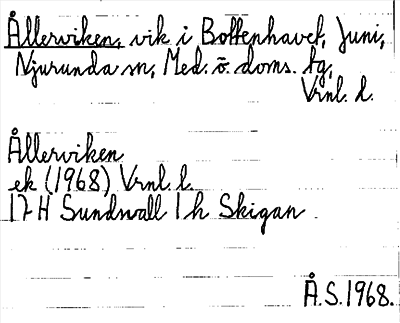 Ållerviken, vik i Bottenhavet, Juni,
Njurunda sn, Med. ö. doms. tg,
Vrnl. l.
Ållerviken
ek (1968) Vrnl. l.
17H Sundsvall 1h Skigan
Å.S. 1968.